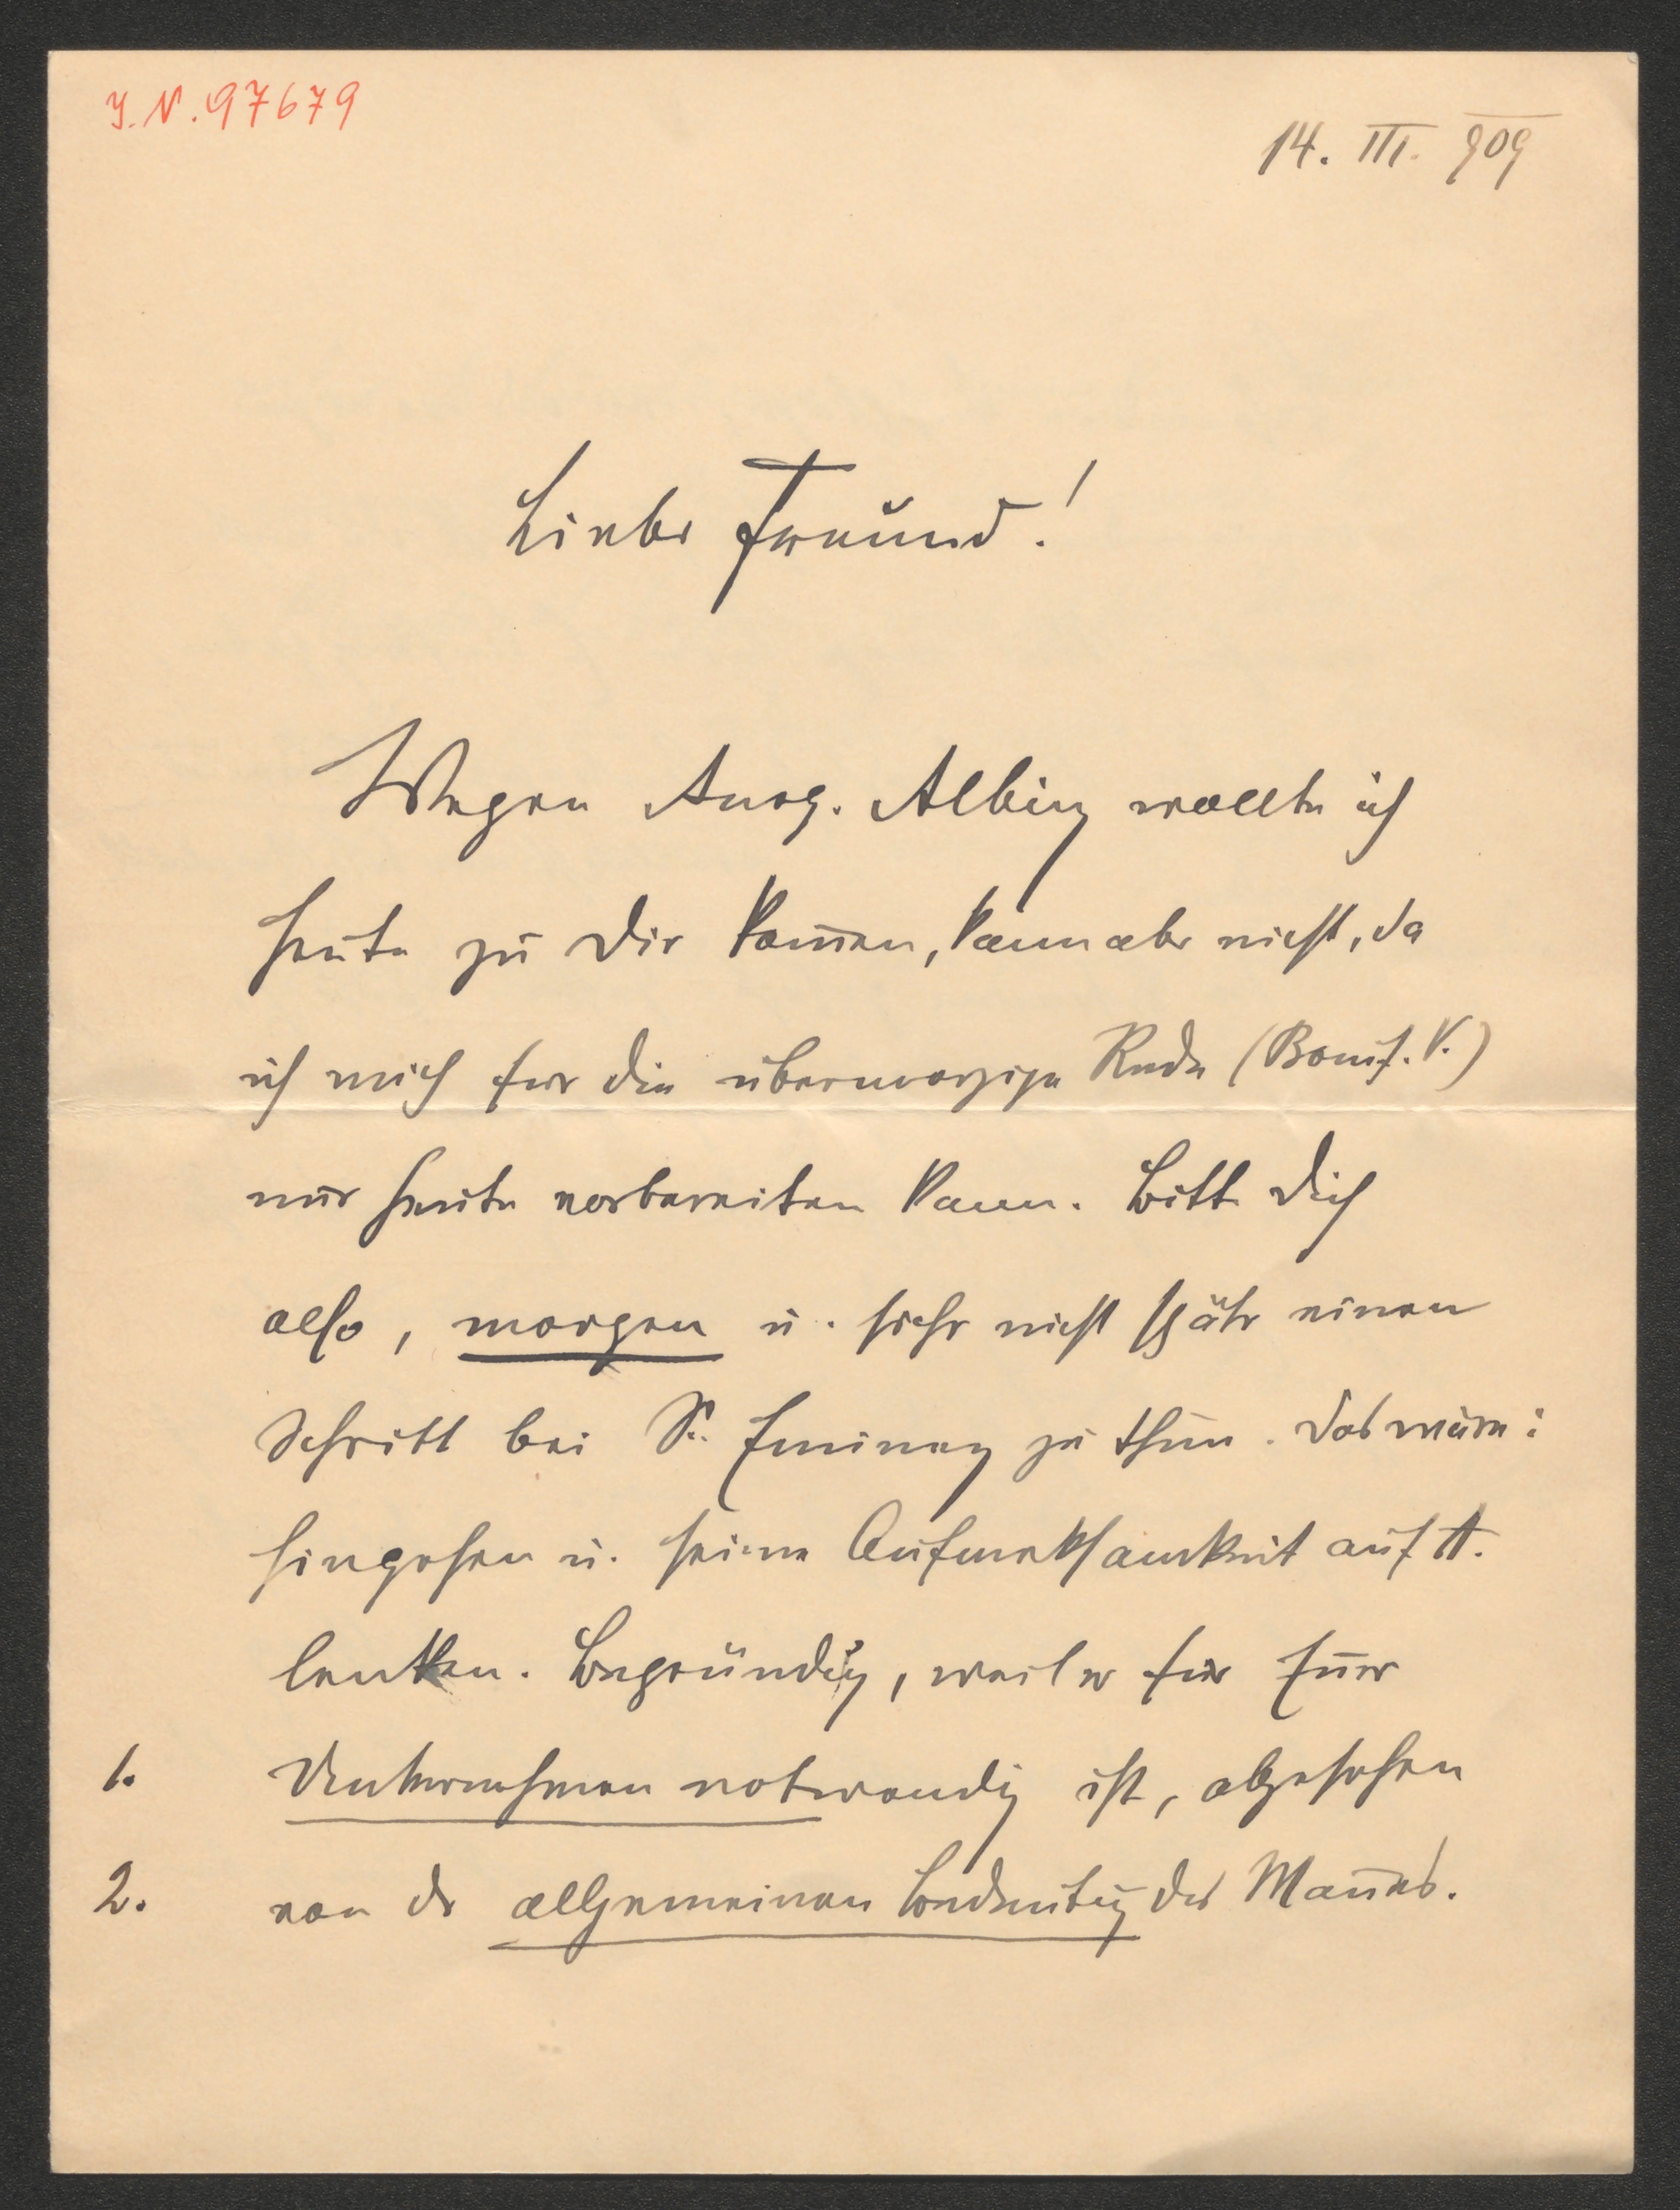 J. N. 97679
14. III. 909
Lieber Freund!
Wegen Ausg. Albing wollte ich
heute zu Dir kom̄en, kann aber nicht, da
ich mich für die übermorgige Rede (Bonif. V.)
nur heute vorbereiten kann. Bitte Dich
also, morgen u. ja nicht später einen
Schritt bei Sr. Eminenz zu thun. Das wäre:
hingehen u. seine Aufmerksamkeit auf A.
lenken. Begründg, weil er für Euer
1. Unternehmen notwendig ist, abgesehen
2. von der allgemeinen Bedeutg des Man̄es.